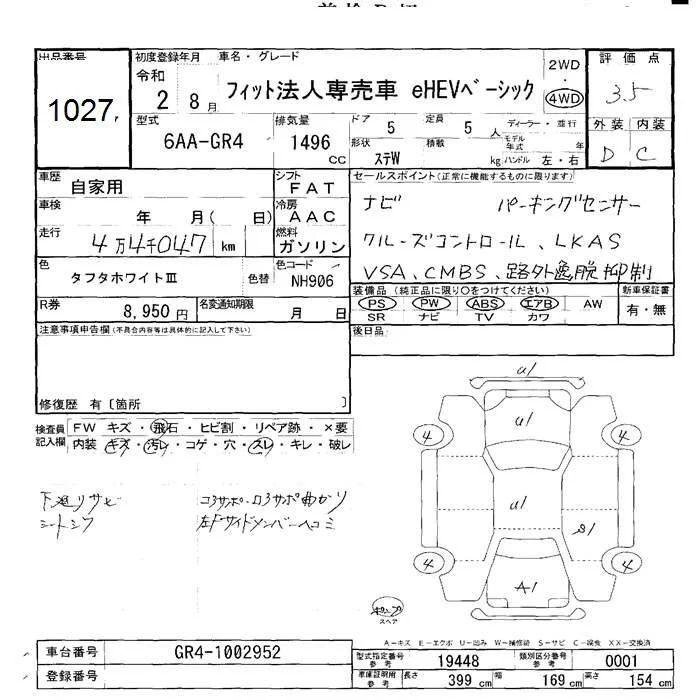 出品番号
1027
初度登録年月
令和
2 8月
車名・グレード
フィット法人専売車 eHEVベーシック
2WD
・
4WD
評価点
3.5
型式
6AA-GR4
排気量
1496
CC
ドア 5
定員 5 人
形状 ステW
積載 kg
ディーラー・並行
モデル年式 年
ハンドル 左・右
外装 内装
D C
車歴
自家用
車検
年 月( 日)
走行
4万4千047 km
シフト
FAT
冷房
AAC
燃料
ガソリン
セールスポイント(正常に機能するものに限ります)
ナビ パーキングセンサー
クルーズコントロール、LKAS
VSA、CMBS、路外逸脱抑制
色
タフタホワイトⅢ
色替
色コード
NH906
装備品(純正品に限り○をつけてください)
PS PW ABS エアB AW
SR ナビ TV カワ
新車保証書
有・無
R券
8,950円
名変通知期限
月 日
後日品
注意事項申告欄(不具合内容等は具体的に記入して下さい)
修復歴 有〔箇所 〕
検査員
記入欄
FW キズ・飛石・ヒビ割・リペア跡・×要
内装 キズ・汚レ・コゲ・穴・スレ・キレ・破レ
下廻りサビ
コアサポ・ロアサポ曲がり
左Fサイドメンバーヘコミ
U1
U1
4
4
U1
S1
4
4
A1
スペア
A-キズ E-エクボ U-凹み W-補修跡 S-サビ C-腐食 XX-交換済
車台番号
GR4-1002952
登録番号
型式指定番号
参考
19448
類別区分番号
参考
0001
車庫証明用
参考
長さ 399 cm
幅 169 cm
高さ 154 cm